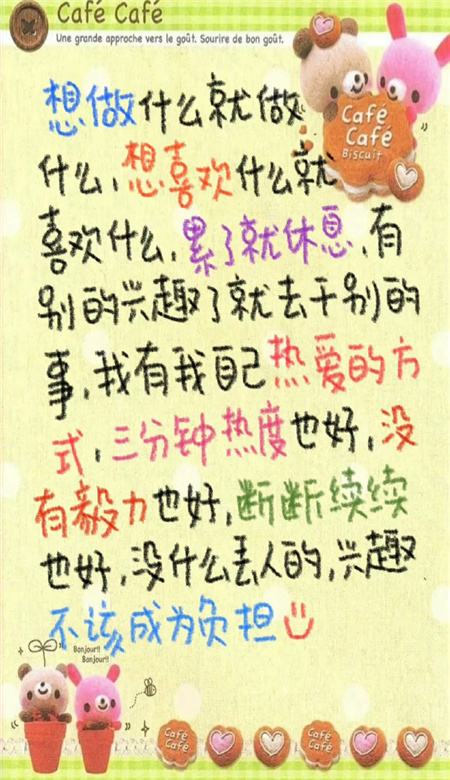 Café Café
Une grande approche vers le goût. Sourire de bon goût.
Café
Café
Biscuit
想做什么就做
什么,想喜欢什么就
喜欢什么,累了就休息,有
别的兴趣了就去干别的
事,我有我自己热爱的方
式,三分钟热度也好,没
有毅力也好,断断续续
也好,没什么丢人的,兴趣
不该成为负担
Bonjour!!
Bonjour!!
Café
Café
Café
Café